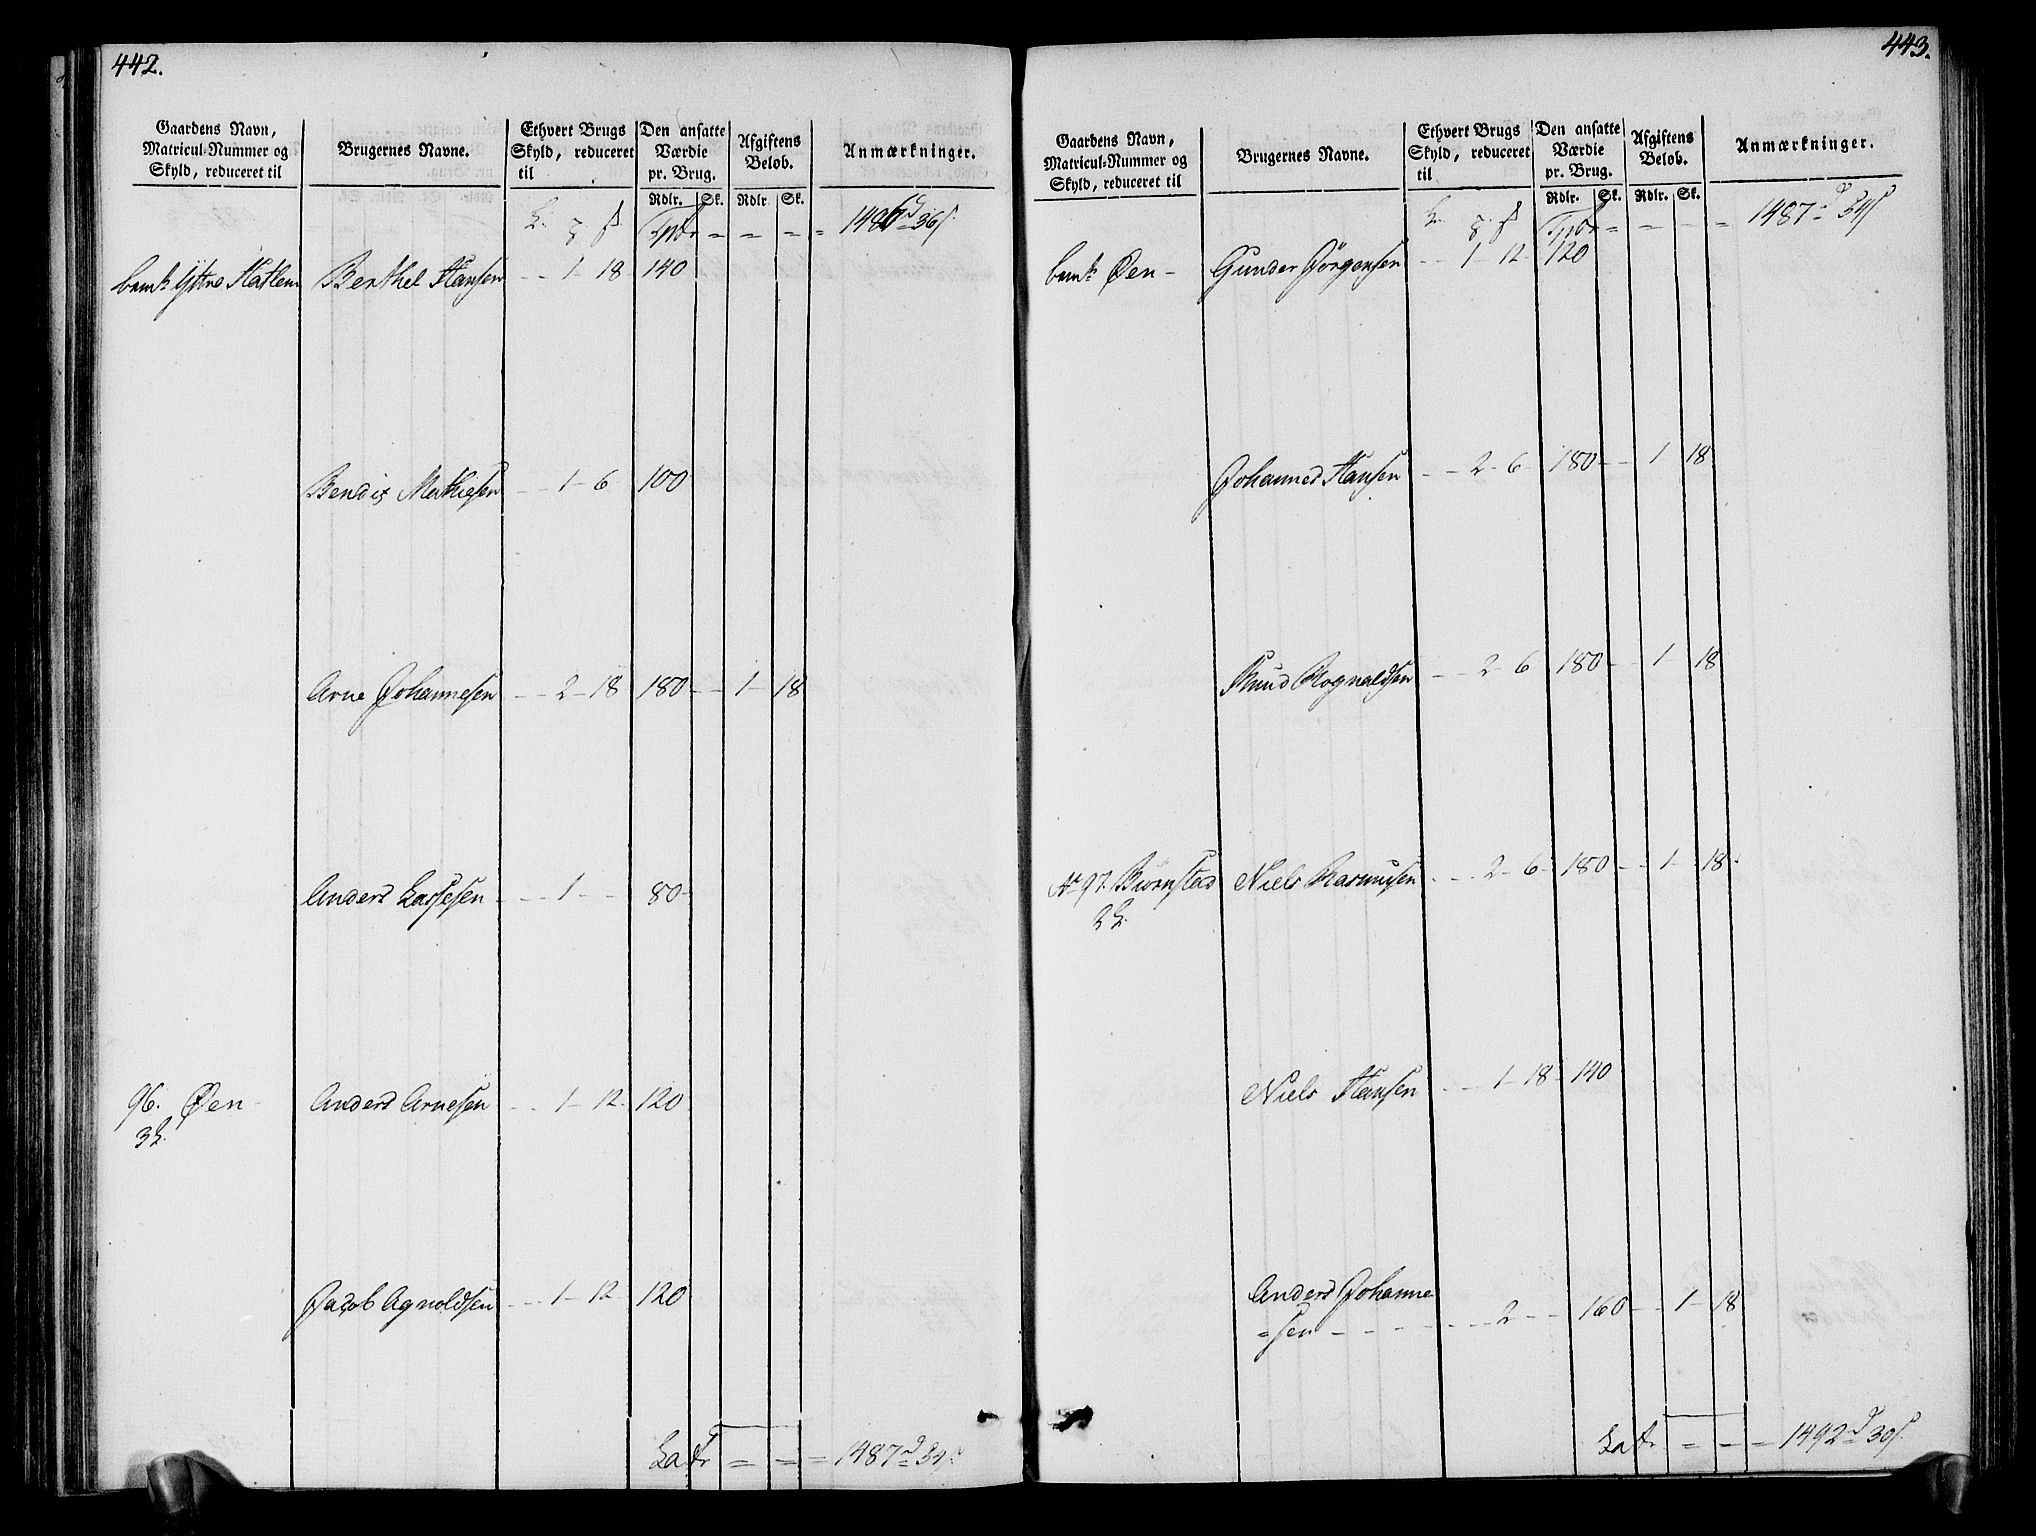 442.
Gaardens Navn, Matricul-Nummer og Skyld, reduceret til
Brugernes Navne.
Ethvert Brugs Skyld, reduceret til
Den ansatte Værdie pr. Brug.
Afgiftens Beløb.
Anmærkninger.
Rdlr. Sk. Rdlr Sk.
Tpr = = = = 1486 d 36 s
Berthel Hansen - - 1 - 18 140
Bendix Mathiesen - - 1 - 6 100
Arne Johannesen - - 2 - 18 180 - - 1 - 18
Anders Lassesen - - - 1 - - 80 -
96. Øen - Anders Arnesen - - - 1 - 12 120
3 L.
Jacob Agnoldsen - - - 1 - 12 - 120
Latr = = = 1487 d 54 s
443.
Gaardens Navn, Matricul-Nummer og Skyld, reduceret til
Brugernes Navne.
Ethvert Brugs Skyld, reduceret til
Den ansatte Værdie pr. Brug.
Afgiftens Beløb.
Anmærkninger.
Rdlr. Sk. Rdlr. Sk.
Tpr = - - = 1487 d 54 s
Øen - Gunder Jörgensen - - 1 - 12 - 120
Johannes Hansen - - 2 - 6 - 180 - - 1 18
Knud Rognaldsen - - 2 - 6 180 - - 1 - 18
No 97. Biørnstad Niels Rasmusen - - - 2 - 6 - 180 - - 1 - - 18 -
2 L.
Niels Hansen - - - 1 - 18 - 140
Anders Johanne
= sen - - - - - - - 2 - - 160 - - 1 - 18
Latr = = = 1492 d 30 s